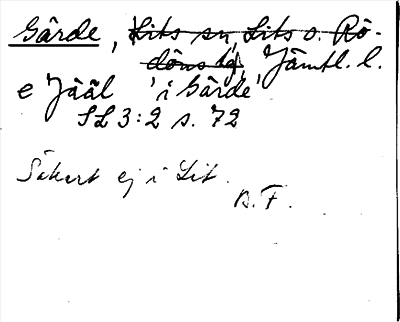 Gårde, Lits sn, Lits o. Rö-
döns tg, Jämtl. l.
e Jààl 'i Gårde'
SL 3:2 s. 72
Säkert ej i Lit.
B.F.